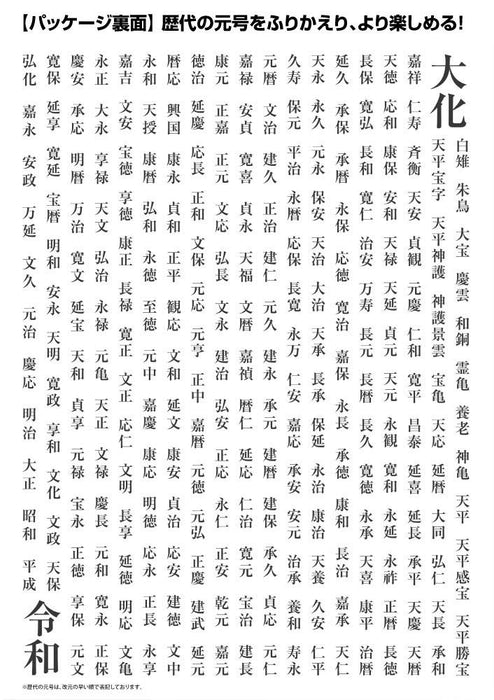 【パッケージ裏面】 歴代の元号をふりかえり、より楽しめる!
大化
白雉 朱鳥 大宝 慶雲 和銅 霊亀 養老 神亀 天平 天平感宝 天平勝宝
天平宝字 天平神護 神護景雲 宝亀 天応 延暦 大同 弘仁 天長 承和
嘉祥 仁寿 斉衡 天安 貞観 元慶 仁和 寛平 昌泰 延喜 延長 承平 天慶 天暦
天徳 応和 康保 安和 天禄 天延 貞元 天元 永観 寛和 永延 永祚 正暦 長徳
長保 寛弘 長和 寛仁 治安 万寿 長元 長暦 長久 寛徳 永承 天喜 康平 治暦
延久 承保 承暦 永保 応徳 寛治 嘉保 永長 承徳 康和 長治 嘉承 天仁
天永 永久 元永 保安 天治 大治 天承 長承 保延 永治 康治 天養 久安 仁平
久寿 保元 平治 永暦 応保 長寛 永万 仁安 嘉応 承安 安元 治承 養和 寿永
元暦 文治 建久 正治 建仁 元久 建永 承元 建暦 建保 承久 貞応 元仁
嘉禄 安貞 寛喜 貞永 天福 文暦 嘉禎 暦仁 延応 仁治 寛元 宝治 建長
康元 正嘉 正元 文応 弘長 文永 建治 弘安 正応 永仁 正安 乾元 嘉元
徳治 延慶 応長 正和 文保 元応 元亨 正中 嘉暦 元徳 元弘 正慶 建武 延元
暦応 興国 康永 貞和 正平 観応 文和 延文 康安 貞治 応安 建徳 文中
永和 天授 康暦 弘和 永徳 至徳 元中 嘉慶 康応 明徳 応永 正長 永享
嘉吉 文安 宝徳 享徳 康正 長禄 寛正 文正 応仁 文明 長享 延徳 明応 文亀
永正 大永 享禄 天文 弘治 永禄 元亀 天正 文禄 慶長 元和 寛永 正保
慶安 承応 明暦 万治 寛文 延宝 天和 貞享 元禄 宝永 正徳 享保 元文
寛保 延享 寛延 宝暦 明和 安永 天明 寛政 享和 文化 文政 天保
弘化 嘉永 安政 万延 文久 元治 慶応 明治 大正 昭和 平成
令和
※歴代の元号は、改元の早い順で表記しております。